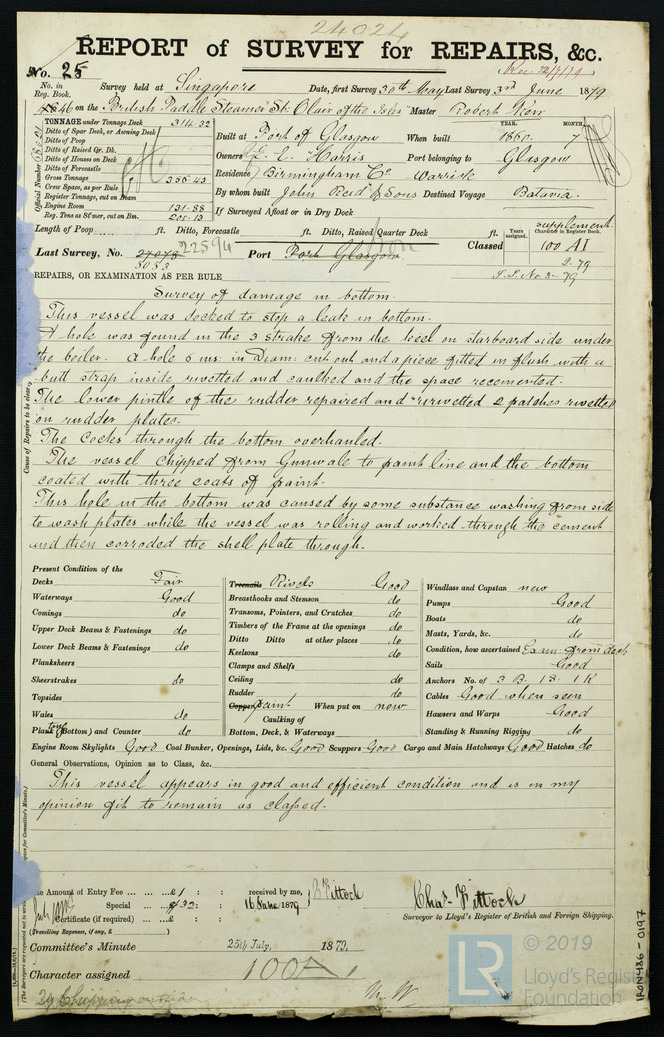 24024
REPORT of SURVEY for REPAIRS, &c.
No. 25
No. in Reg. Book.
Survey held at Singapore
Date, first Survey 30th May Last Survey 3rd June 1879
46 on the British Paddle Steamer "St Clair of the Isles" Master Robert
TONNAGE under Tonnage Deck 314.32
Ditto of Spar Deck, or Awning Deck
Ditto of Poop
Ditto of Raised Qr. Dk.
Ditto of Houses on Deck
Ditto of Forecastle
Gross Tonnage
Crew Space, as per Rule
Register Tonnage, cut on Beam
Engine Room 131.88
Reg. Tons as St'mer, cut on Bm.
Official Number
YEAR. MONTH.
Built at Port of Glasgow When built 1860. 7
Owners E. Harris Port belonging to Glasgow
Residence Birmingham Co Warwick
By whom built John Reid & Sons Destined Voyage Batavia.
If Surveyed Afloat or in Dry Dock
Length of Poop ft. Ditto, Forecastle ft. Ditto, Raised Quarter Deck ft.
Years assigned. supplement. Character in Register Book.
Last Survey, No. 22594 Port Port Glasgow Classed 100 A1
Iron
2.79
S.S. No. 3-79
REPAIRS, OR EXAMINATION AS PER RULE
Survey of damage in bottom.
This vessel was docked to stop a leak in bottom.
A hole was found in the 3 strake from the keel on starboard side under
the boiler. A hole 6 ins. in Diam. cut out and a piece fitted in flush with a
butt strap inside rivetted and caulked and the space recemented.
The lower pintle of the rudder repaired and rivetted 2 patches rivetted
on rudder plates.
The Cocks through the bottom overhauled.
The vessel chipped from Gunwale to paint line and the bottom
coated with three coats of paint.
This hole in the bottom was caused by some substance washing from side
to wash plates while the vessel was rolling and worked through the cement
and then corroded the shell plate through.
Cause of Repairs to be clearly
Present Condition of the
Decks Fair
Waterways Good
Comings do
Upper Deck Beams & Fastenings do
Lower Deck Beams & Fastenings do
Planksheers
Sheerstrakes do
Topsides
Wales do
Plank (Bottom) and Counter do
Treenails Rivets Good
Breasthooks and Stemson do
Transoms, Pointers, and Crutches do
Timbers of the Frame at the openings do
Ditto Ditto at other places do
Keelsons do
Clamps and Shelfs
Ceiling do
Rudder do
Copper paint When put on now
Caulking of
Bottom, Deck, & Waterways
Windlass and Capstan new
Pumps Good
Boats do
Masts, Yards, &c. do
Condition, how ascertained Exam from deck
Sails Good
Anchors No. of 3 B. 1 S. 1 K
Cables Good when seen
Hawsers and Warps Good
Standing & Running Rigging do
Engine Room Skylights Good Coal Bunker, Openings, Lids, &c. Good Scuppers Good Cargo and Main Hatchways Good Hatches do
General Observations, Opinion as to Class, &c.
This vessel appears in good and efficient condition and is in my
opinion fit to remain as classed.
The Amount of Entry Fee £1 : : received by me, C Pittock
Special £ 32: : 16 June 1879
Certificate (if required) £ : :
(Travelling Expenses, if any, £ )
Chas. Pittock
Surveyor to Lloyd's Register of British and Foreign Shipping.
Committee's Minute 25th July, 1879.
Character assigned 100A1
IRON486-0197
LR
© 2019
Lloyd's Register
Foundation